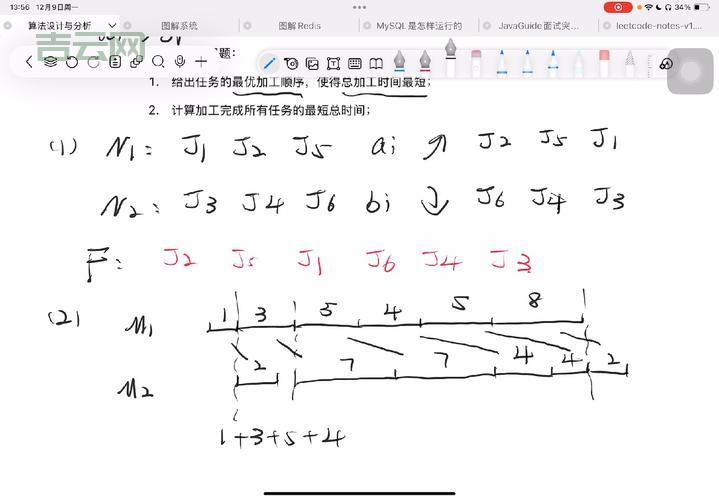 13:56 12月9日周一 34%
算法设计与分析 图解系统 图解Redis MySQL是怎样运行的 JavaGuide面试突... leetcode-notes-v1....
吉云网
题:
1. 给出任务的最优加工顺序，使得总加工时间最短;
2. 计算加工完成所有任务的最短总时间;
(1) N1: J1 J2 J5 ai ↗ J2 J5 J1
N2: J3 J4 J6 bi ↓ J6 J4 J3
F: J2 J5 J1 J6 J4 J3
(2) M1 1 3 5 4 5 8
M2 2 7 7 4 4 2
1+3+5+4